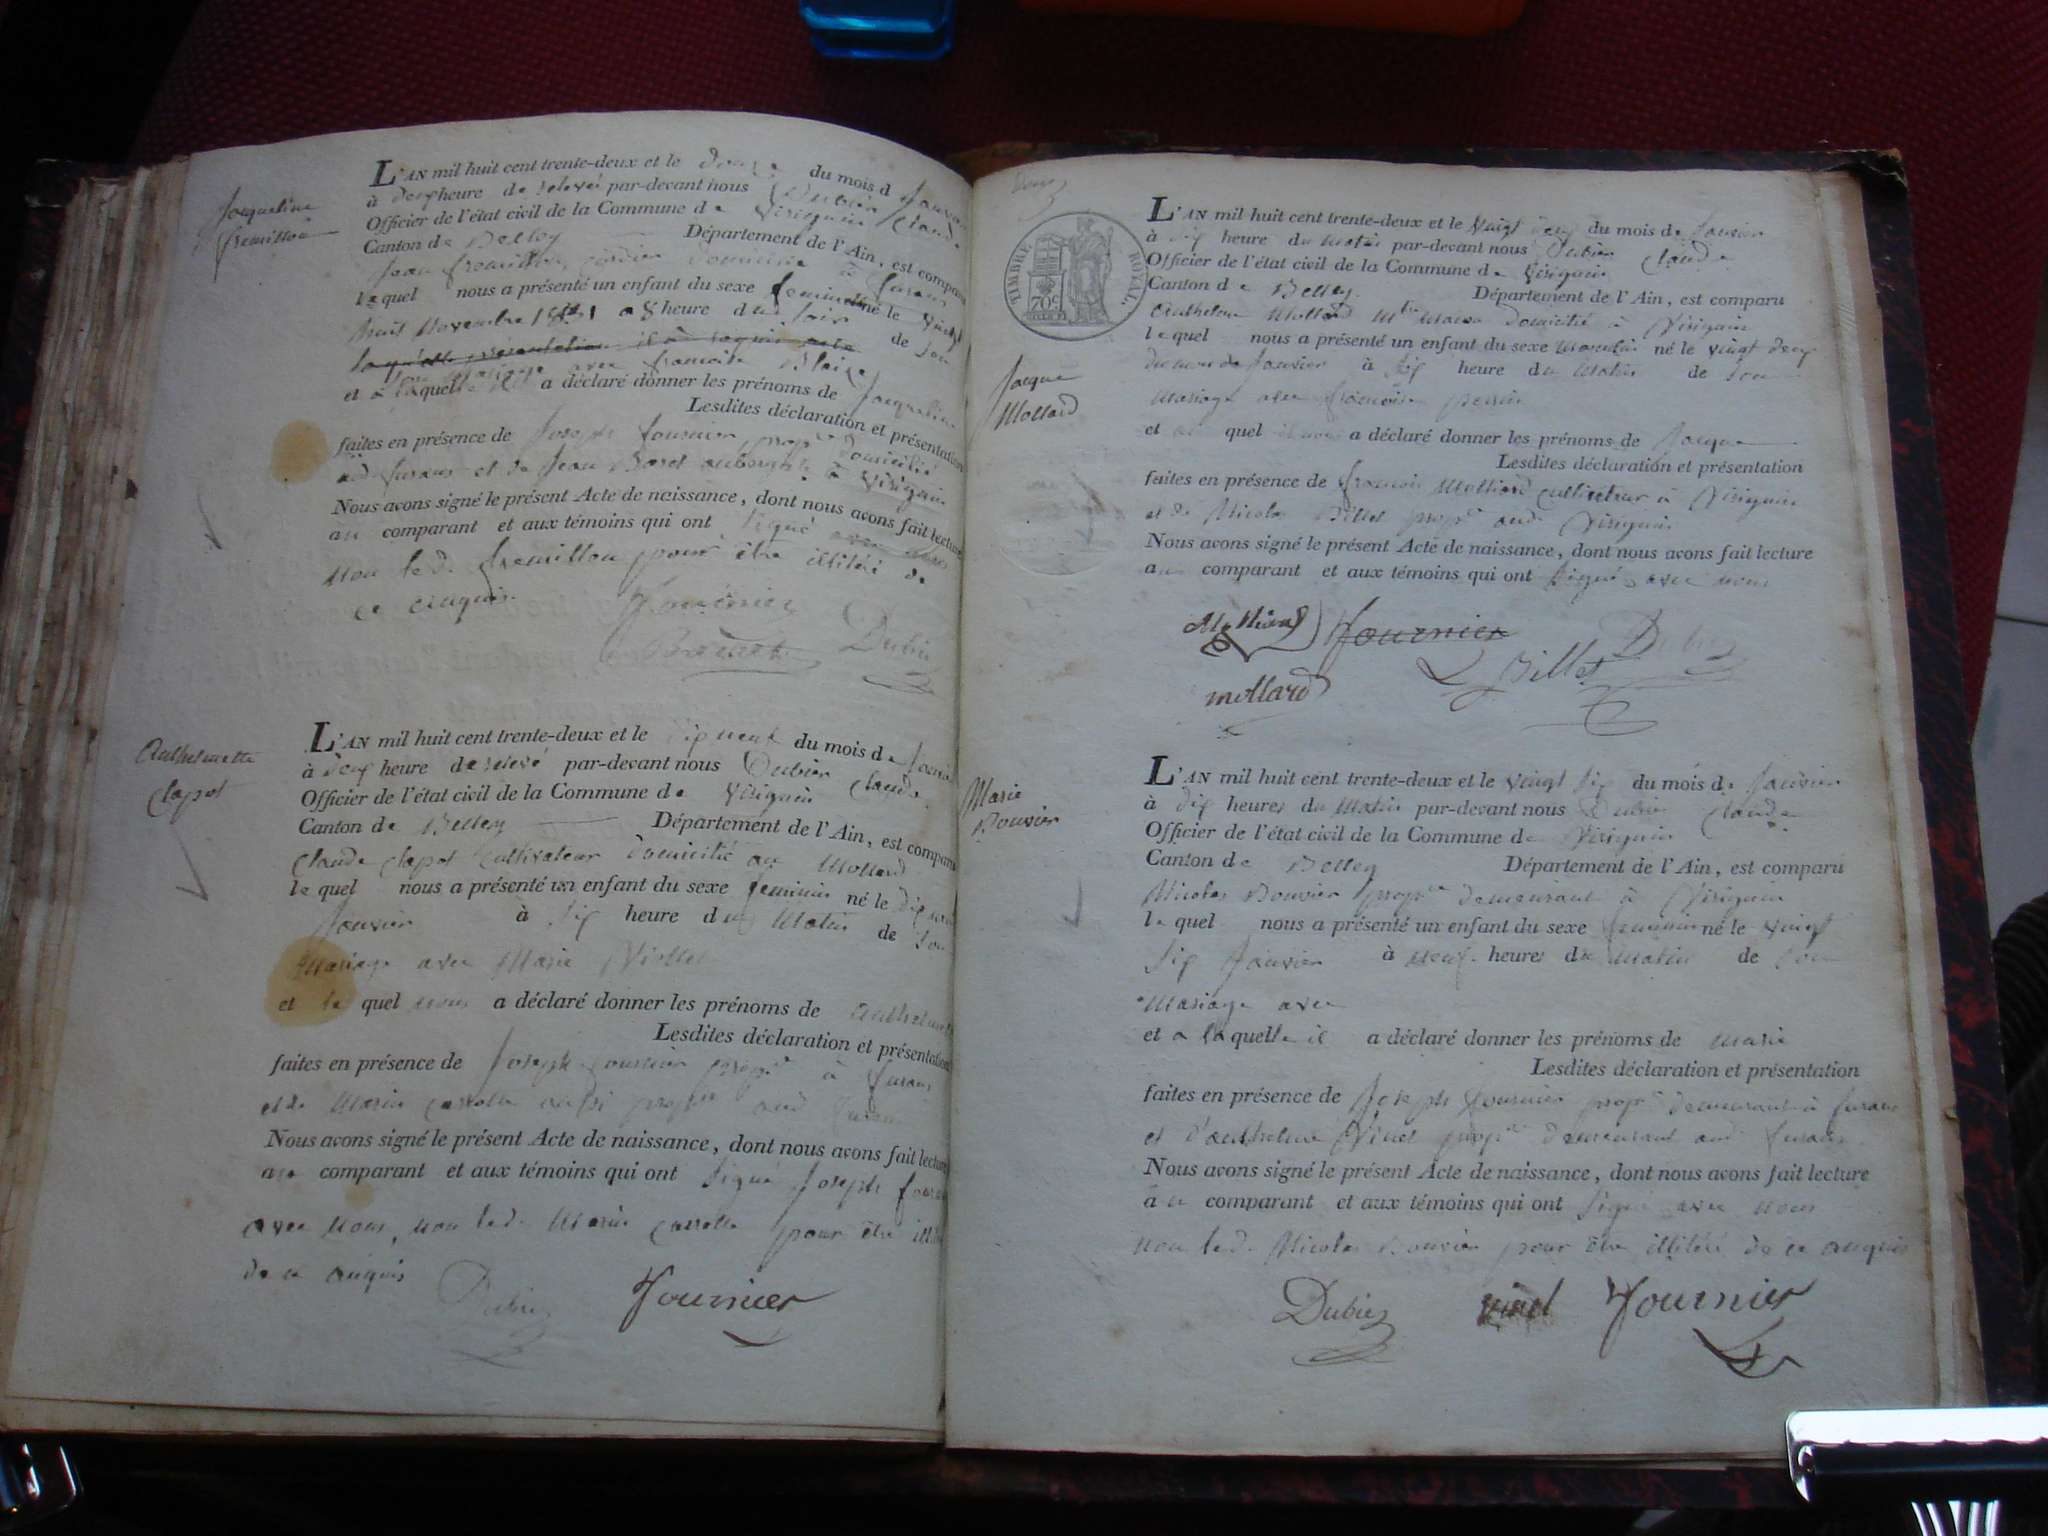 Jacqueline
fremillon
L'AN mil huit cent trente-deux et le douze du mois d Janvier
à deux heure de relevé par-devant nous Dubier Claude
Officier de l'état civil de la Commune de Virignin
Canton de Belley Département de l'Ain, est comparu
Jean fremillon domicilié à furans
lequel nous a présenté un enfant du sexe feminin né le vingt
huit Novembre 1831 a 8 heure du soir de son
mariage avec francoise Blaize
et a laquelle il a déclaré donner les prénoms de Jacqueline
Lesdites déclaration et présentation
faites en présence de Joseph fournier prop.re domicilié
aud furans et de Jean à Virignin
Nous avons signé le présent Acte de naissance, dont nous avons fait lecture
au comparant et aux témoins qui ont signé avec nous
non led. fremillon pour être illitéré de
ce enquis
Fournier
Dubier
Anthelmette
Clapot
L'AN mil huit cent trente-deux et le dix neuf du mois de Janvier
à deux heure de relevé par-devant nous Dubier Claude
Officier de l'état civil de la Commune de Virignin
Canton de Belley Département de l'Ain, est comparu
Claude Clapot cultivateur domicilié au Mollard
lequel nous a présenté un enfant du sexe feminin né le dix neuf
Janvier à six heure du Matin de son
Mariage avec Marie Viollet
et le quel nous a déclaré donner les prénoms de anthelmette
Lesdites déclaration et présentation
faites en présence de Joseph fournier prop.re à furans
et de Marin aussi prop.re aud furans
Nous avons signé le présent Acte de naissance, dont nous avons fait lecture
au comparant et aux témoins qui ont signé Joseph fournier
avec nous, non led. Marin pour être illitéré
de ce enquis
Dubier Fournier
TIMBRE ROYAL.
70c
Jacque
Mollard
L'AN mil huit cent trente-deux et le vingt deux du mois de Janvier
à dix heure du Matin par-devant nous Dubier Claude
Officier de l'état civil de la Commune de Virignin
Canton de Belley. Département de l'Ain, est comparu
Anthelme Mollard domicilié à Virignin
lequel nous a présenté un enfant du sexe Masculin né le vingt deux
du mois de Janvier à six heure du Matin de son
Mariage avec francoise perrin
et au quel il nous a déclaré donner les prénoms de Jacque
Lesdites déclaration et présentation
faites en présence de francois Molliard cultivateur à Virignin
et de Nicolas Billet prop.re aud. Virignin
Nous avons signé le présent Acte de naissance, dont nous avons fait lecture
au comparant et aux témoins qui ont signés avec nous
Molliard Fournier Dubier
Billet
mollard
Marie
Bouvier
L'AN mil huit cent trente-deux et le vingt six du mois de Janvier
à dix heures du Matin par-devant nous Dubier Claude
Officier de l'état civil de la Commune de Virignin
Canton de Belley Département de l'Ain, est comparu
Nicolas Bouvier prop.re demeurant à Virignin
lequel nous a présenté un enfant du sexe feminin né le vingt
six Janvier à neuf heures du matin de son
Mariage avec
et a laquelle il a déclaré donner les prénoms de Marie
Lesdites déclaration et présentation
faites en présence de Joseph fournier prop.re demeurant à furans
et d'anthelme Vinet prop.re demeurant aud. furans
Nous avons signé le présent Acte de naissance, dont nous avons fait lecture
au comparant et aux témoins qui ont signé avec nous
non led. Nicolas Bouvier pour être illitéré de ce enquis
Dubier Fournier